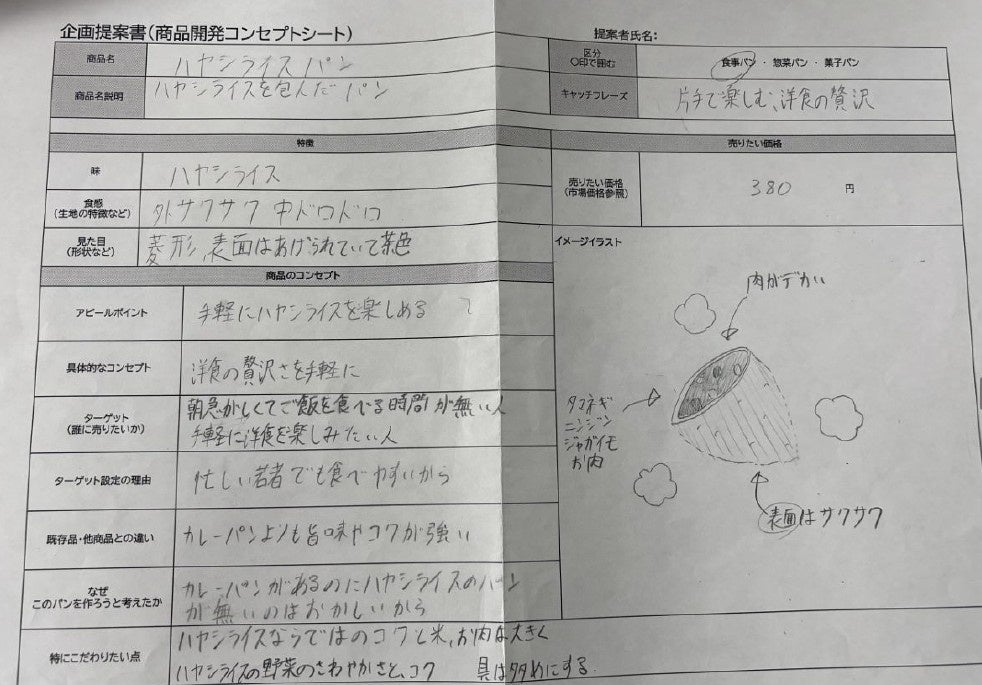 企画提案書(商品開発コンセプトシート)
提案者氏名:
商品名
ハヤシライスパン
区分
○印で囲む
食事パン ・ 惣菜パン ・ 菓子パン
商品名説明
ハヤシライスを包んだパン
キャッチフレーズ
片手で楽しむ、洋食の贅沢
特徴
売りたい価格
味
ハヤシライス
売りたい価格
(市場価格参照)
380 円
食感
(生地の特徴など)
外サクサク 中ドロドロ
見た目
(形状など)
菱形、表面はあげられていて茶色
イメージイラスト
肉がデカい
タマネギ
ニンジン
ジャガイモ
お肉
表面はサクサク
商品のコンセプト
アピールポイント
手軽にハヤシライスを楽しめる
具体的なコンセプト
洋食の贅沢さを手軽に
ターゲット
(誰に売りたいか)
朝急がしくてご飯を食べる時間が無い人
手軽に洋食を楽しみたい人
ターゲット設定の理由
忙しい若者でも食べやすいから
既存品・他商品との違い
カレーパンよりも旨味やコクが強い
なぜ
このパンを作ろうと考えたか
カレーパンがあるのにハヤシライスのパン
が無いのはおかしいから
特にこだわりたい点
ハヤシライスならではのコクと米、お肉は大きく
ハヤシライスの野菜のさわやかさと、コク 具は多めにする。